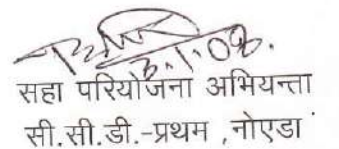 3.1.08.
सहा परियोजना अभियन्ता
सी.सी.डी.-प्रथम ,नोएडा